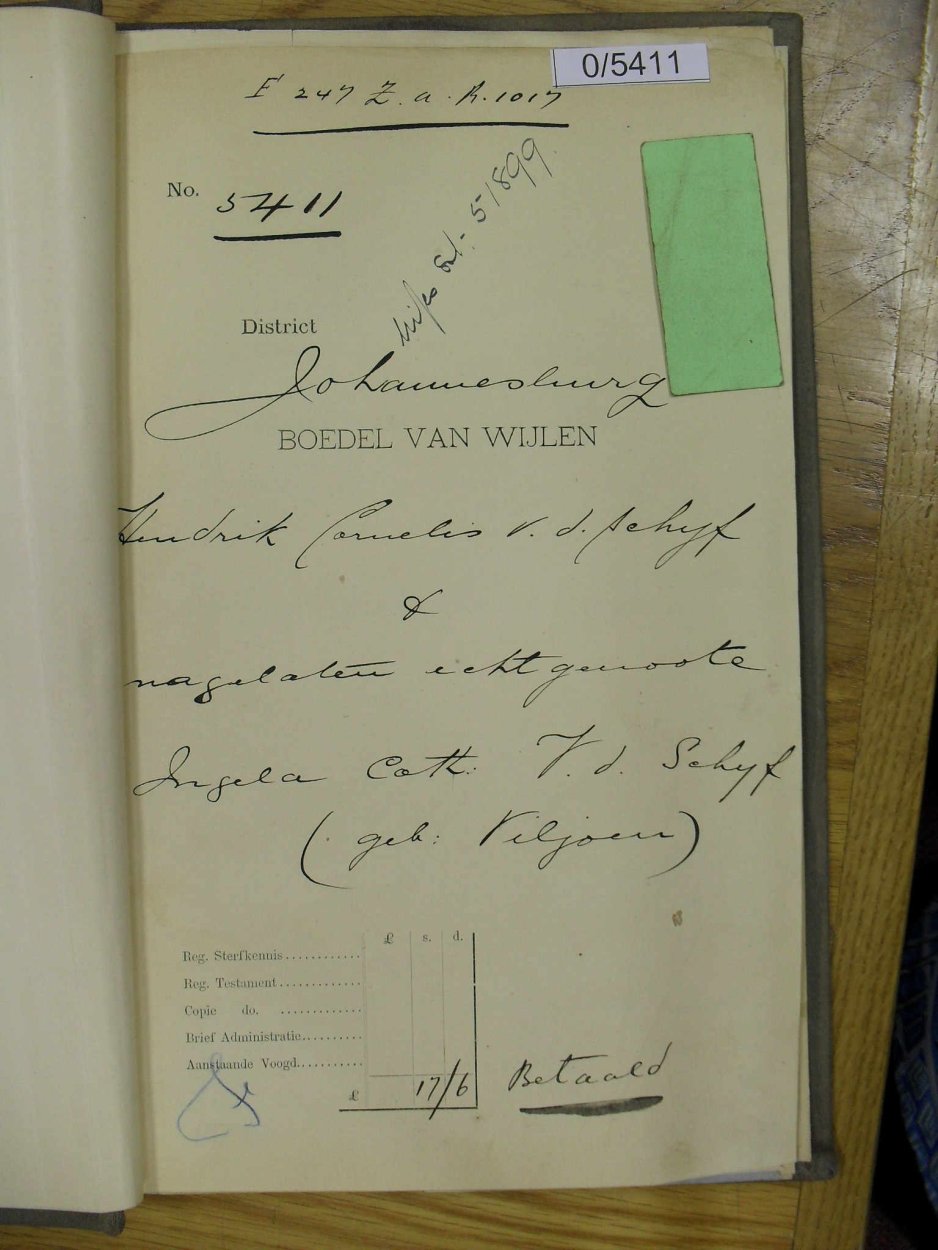 0/5411
F 247 Z.a.R. 1017
No. 5411
5/1899
District
Johannesburg
BOEDEL VAN WIJLEN
Hendrik Cornelis v. d. Schyf
&
nagelaten echtgenoote
Ingela Cath: V. d. Schyf
(geb: Viljoen)
£ s. d.
Reg. Sterfkennis............
Reg. Testament.............
Copie do. .............
Brief Administratie..........
Aanstaande Voogd...........
£ 17/6 Betaald